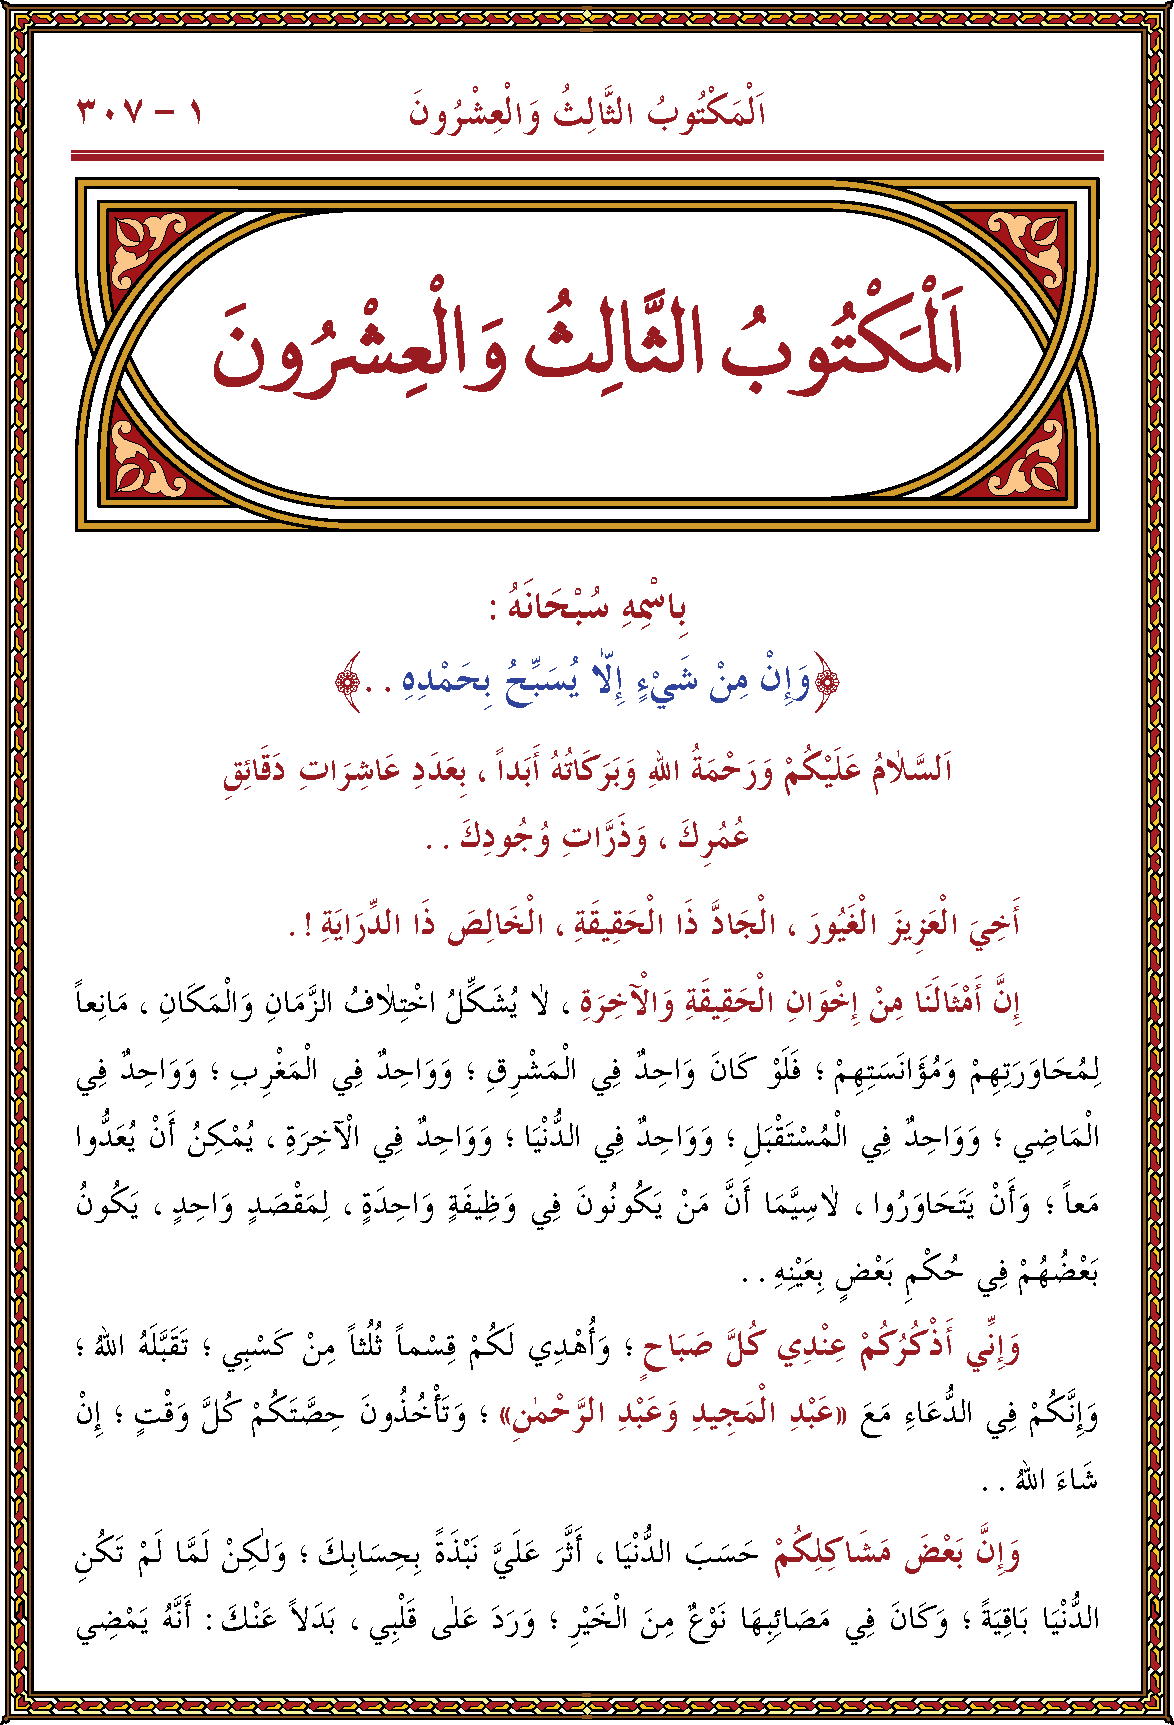 اَلْمَكْتُوبُ الثَّالِثُ وَالْعِشْرُونَ ١ – ٣٠٧
اَلْمَكْتُوبُ الثَّالِثُ وَالْعِشْرُونَ
بِاسْمِهِ سُبْحَانَهُ :
﴿وَإِنْ مِنْ شَيْءٍ إِلَّا يُسَبِّحُ بِحَمْدِهِ . .﴾
اَلسَّلَامُ عَلَيْكُمْ وَرَحْمَةُ اللهِ وَبَرَكَاتُهُ أَبَداً ، بِعَدَدِ عَاشِرَاتِ دَقَائِقِ
عُمُرِكَ ، وَذَرَّاتِ وُجُودِكَ . .
أَخِيَ الْعَزِيزَ الْغَيُورَ ، الْجَادَّ ذَا الْحَقِيقَةِ ، الْخَالِصَ ذَا الدِّرَايَةِ ! .
إِنَّ أَمْثَالَنَا مِنْ إِخْوَانِ الْحَقِيقَةِ وَالْآخِرَةِ ، لَا يُشَكِّلُ اخْتِلَافُ الزَّمَانِ وَالْمَكَانِ ، مَانِعاً
لِمُحَاوَرَتِهِمْ وَمُؤَانَسَتِهِمْ ؛ فَلَوْ كَانَ وَاحِدٌ فِي الْمَشْرِقِ ؛ وَوَاحِدٌ فِي الْمَغْرِبِ ؛ وَوَاحِدٌ فِي
الْمَاضِي ؛ وَوَاحِدٌ فِي الْمُسْتَقْبَلِ ؛ وَوَاحِدٌ فِي الدُّنْيَا ؛ وَوَاحِدٌ فِي الْآخِرَةِ ، يُمْكِنُ أَنْ يُعَدُّوا
مَعاً ؛ وَأَنْ يَتَحَاوَرُوا ، لَاسِيَّمَا أَنَّ مَنْ يَكُونُونَ فِي وَظِيفَةٍ وَاحِدَةٍ ، لِمَقْصَدٍ وَاحِدٍ ، يَكُونُ
بَعْضُهُمْ فِي حُكْمِ بَعْضٍ بِعَيْنِهِ . .
وَإِنِّي أَذْكُرُكُمْ عِنْدِي كُلَّ صَبَاحٍ ؛ وَأُهْدِي لَكُمْ قِسْماً ثُلُثاً مِنْ كَسْبِي ؛ تَقَبَّلَهُ اللهُ ؛
وَإِنَّكُمْ فِي الدُّعَاءِ مَعَ «عَبْدِ الْمَجِيدِ وَعَبْدِ الرَّحْمٰنِ» ؛ وَتَأْخُذُونَ حِصَّتَكُمْ كُلَّ وَقْتٍ ؛ إِنْ
شَاءَ اللهُ . .
وَإِنَّ بَعْضَ مَشَاكِلِكُمْ حَسَبَ الدُّنْيَا ، أَثَّرَ عَلَيَّ نَبْذَةً بِحِسَابِكَ ؛ وَلٰكِنْ لَمَّا لَمْ تَكُنِ
الدُّنْيَا بَاقِيَةً ؛ وَكَانَ فِي مَصَائِبِهَا نَوْعٌ مِنَ الْخَيْرِ ؛ وَرَدَ عَلٰى قَلْبِي ، بَدَلاً عَنْكَ : أَنَّهُ يَمْضِي